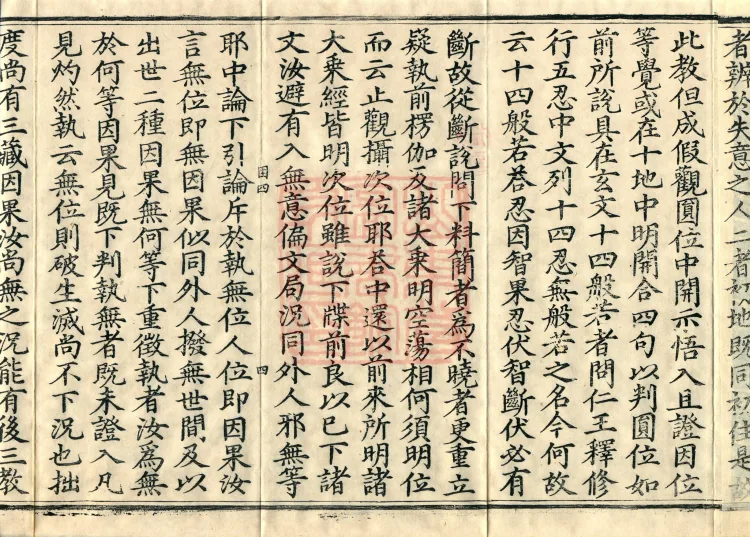 者辨於失意之人二者初地既同初住是故
此教但成假觀圓位中開示悟入且證因位
等覺或在十地中明開合四句以判圓位如
前所說具在玄文十四般若者問仁王釋修
行五忍中文列十四忍無般若之名今何故
云十四般若荅忍因智果忍伏智斷伏必有
斷故從斷說問下料簡者為不曉者更重立
疑執前楞伽及諸大乘明空蕩相何須明位
而云止觀攝次位耶荅中還以前來所明諸
大乘經皆明次位雖說下牒前良以已下諸
文汝避有入無意僻文局況同外人邪無等
国四
四
耶中論下引論斥於執無位人位即因果汝
言無位即無因果似同外人撥無世間及以
出世二種因果無何等下重徵執者汝為無
於何等因果見既下判執無者既未證入凡
見灼然執云無位則破生滅尚不下況也拙
度尚有三藏因果汝尚無之況能有後三教